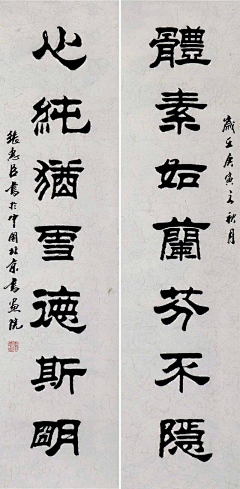 歲在庚寅之秋月
體素如蘭芬不隱
心純猶雪德斯明
書於中國北京書畫院